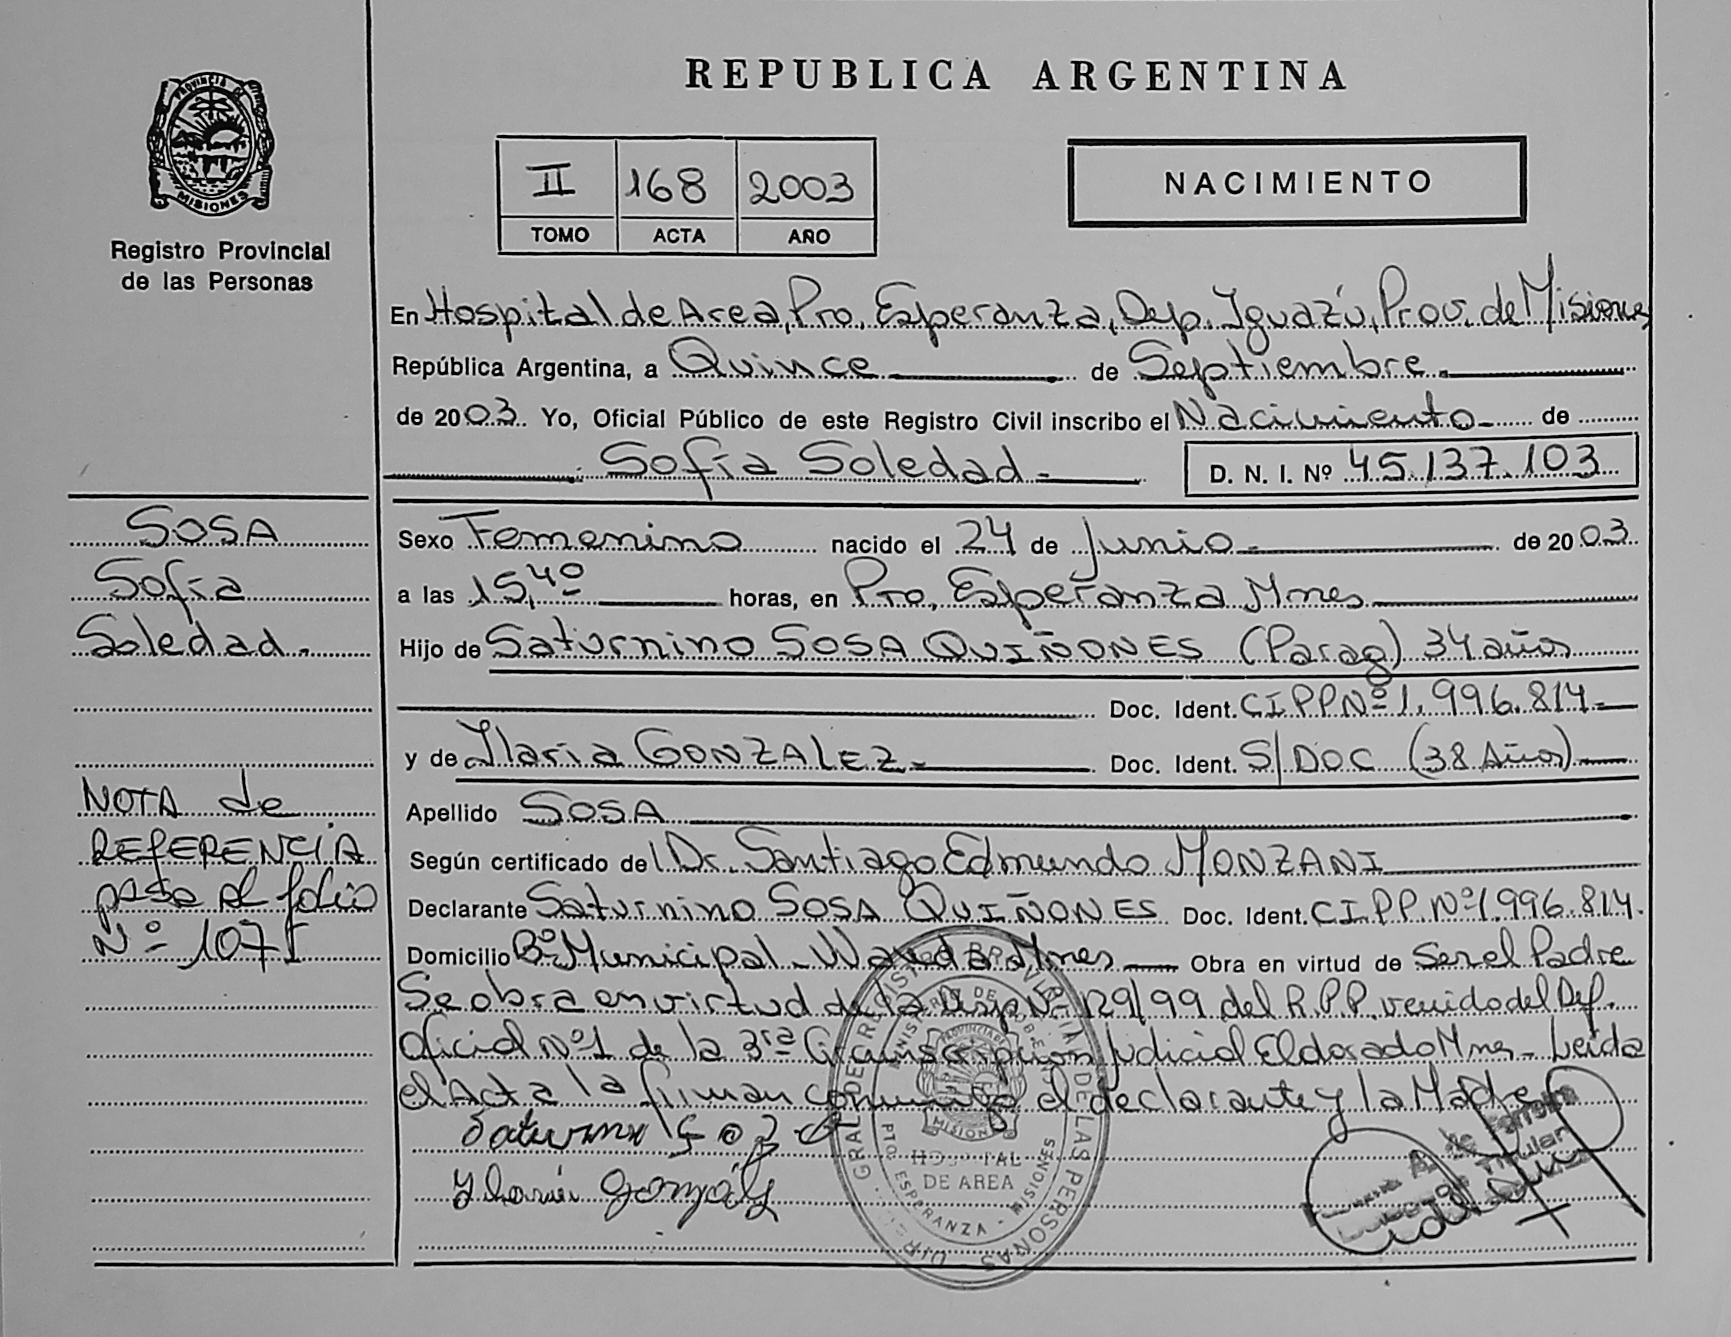 REPUBLICA ARGENTINA
PROVINCIA DE
MISIONES
Registro Provincial
de las Personas
II 168 2003
TOMO ACTA AÑO
NACIMIENTO
En Hospital de Area, Pto. Esperanza, Dep. Iguazú, Prov. de Misiones
República Argentina, a Quince de Septiembre
de 2003 Yo, Oficial Público de este Registro Civil inscribo el Nacimiento de
Sofía Soledad D. N. I. Nº 45.137.103
SOSA
Sofía
Soledad
Sexo Femenino nacido el 24 de Junio de 2003
a las 15,40 horas, en Pto. Esperanza Mnes
Hijo de Saturnino SOSA QUIÑONES (Parag) 34 años
Doc. Ident. CIPP Nº 1.996.814
y de Ilaria GONZALEZ Doc. Ident. S/DOC (38 Años)
Apellido SOSA
Según certificado del Dr. Santiago Edmundo MONZANI
Declarante Saturnino SOSA QUIÑONES Doc. Ident. CIPP Nº 1.996.814
Domicilio Bº Municipal Wanda Mnes Obra en virtud de Ser el Padre
Se obra en virtud de la Disp Nº 129/99 del R.P.P. venido del Def.
Oficial Nº1 de la 3ra Circunscripcion Judicial Eldorado Mnes. Leida
el Acta la firman conmigo el declarante y la Madre
NOTA de
REFERENCIA
pasa al folio
Nº 107
Saturnino Sosa
Ylaria Gonzalez
HOSPITAL
DE AREA
PTO. ESPERANZA - MISIONES
DE LAS PERSONAS
Titular